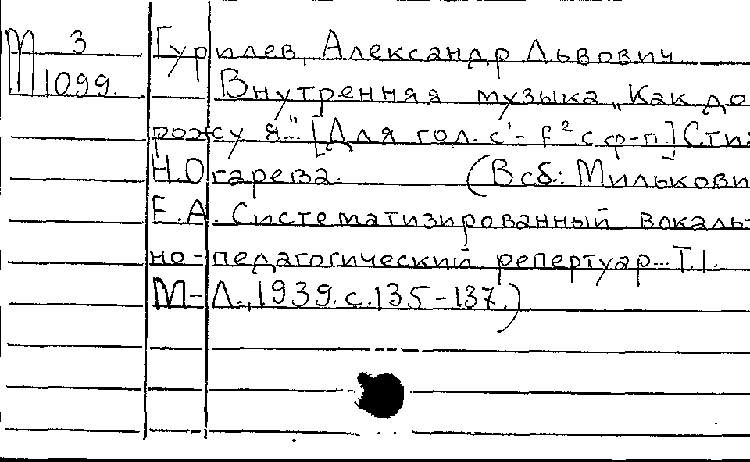 М 3
1099.
Гурилев, Александр Львович
Внутренняя музыка „Как до
рожу я..." [Для гол. c¹- f² с ф-п.] Сти
Н.Огарева. (В сб: Милькови
Е.А. Систематизированный вокаль-
но-педагогический репертуар... Т.I.
М-Л., 1939. с.135-137.)